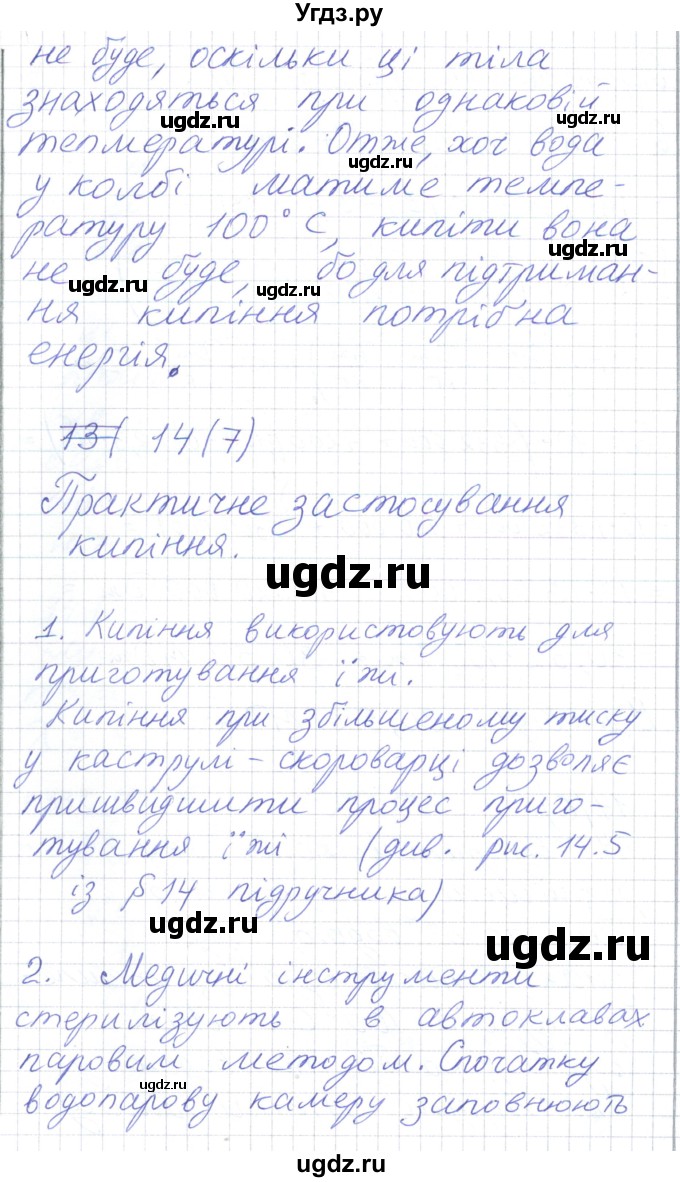 Угдз.ру
не буде, оскільки ці тіла
знаходяться при однаковій
ugdz.ru
ugdz.ru
тепмературі. Отже, хоч вода
ugdz.ru
у колбі матиме темпе-
ратуру 100°С, кипіти вона
ugdz.ru
не буде, бо для підтриман-
ugdz.ru
ugdz.ru
ня кипіння потрібна
енергія.
13( 14(7)
Практичне застосування
кипіння.
ugdz.ru
1. Кипіння використовують для
приготування їжі.
Кипіння при збільшеному тиску
у каструлі-скороварці дозволяє
пришвидшити процес приго-
тування їжі (див. рис. 14.5
із §14 підручника)
ugdz.ru
ugdz.ru
2. Медичні інструменти
стерилізують в автоклавах
паровим методом. Спочатку
ugdz.ru
водопарову камеру заповнюють
ugdz.ru